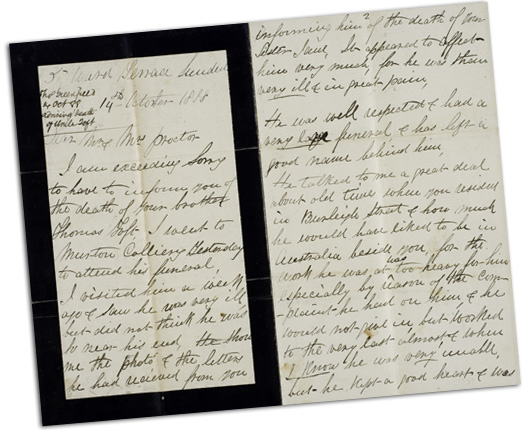 Ward Terrace Sunderl
14th October 1888
Dear Mr & Mrs Proctor
I am exceeding Sorry
to have to inform you of
the death of your brother
Thomas Toft I went to
Murton Colliery Yesterday
to attend his funeral,
I visited him a week
ago & saw he was very ill
but did not think he was
so near his end, He show
me the photos & the letters
he had received from you
4 Oct 88
of Uncle Toft
informing him of the death of
Sister Jane, It appeared to affect
him very much, for he was then
very ill & in great pain,
He was well respected & had a
very large funeral & has left a
good name behind him,
He talked to me a great deal
about old times when you resided
in Burleigh Street & how much
he would have liked to be in
Australia beside you, for the
work he was at was too heavy for him
especially by reason of the Com-
plaint he had on him & he
would not give in, but worked
to the very last almost & when
I know he was very unable,
but he kept a good heart & was